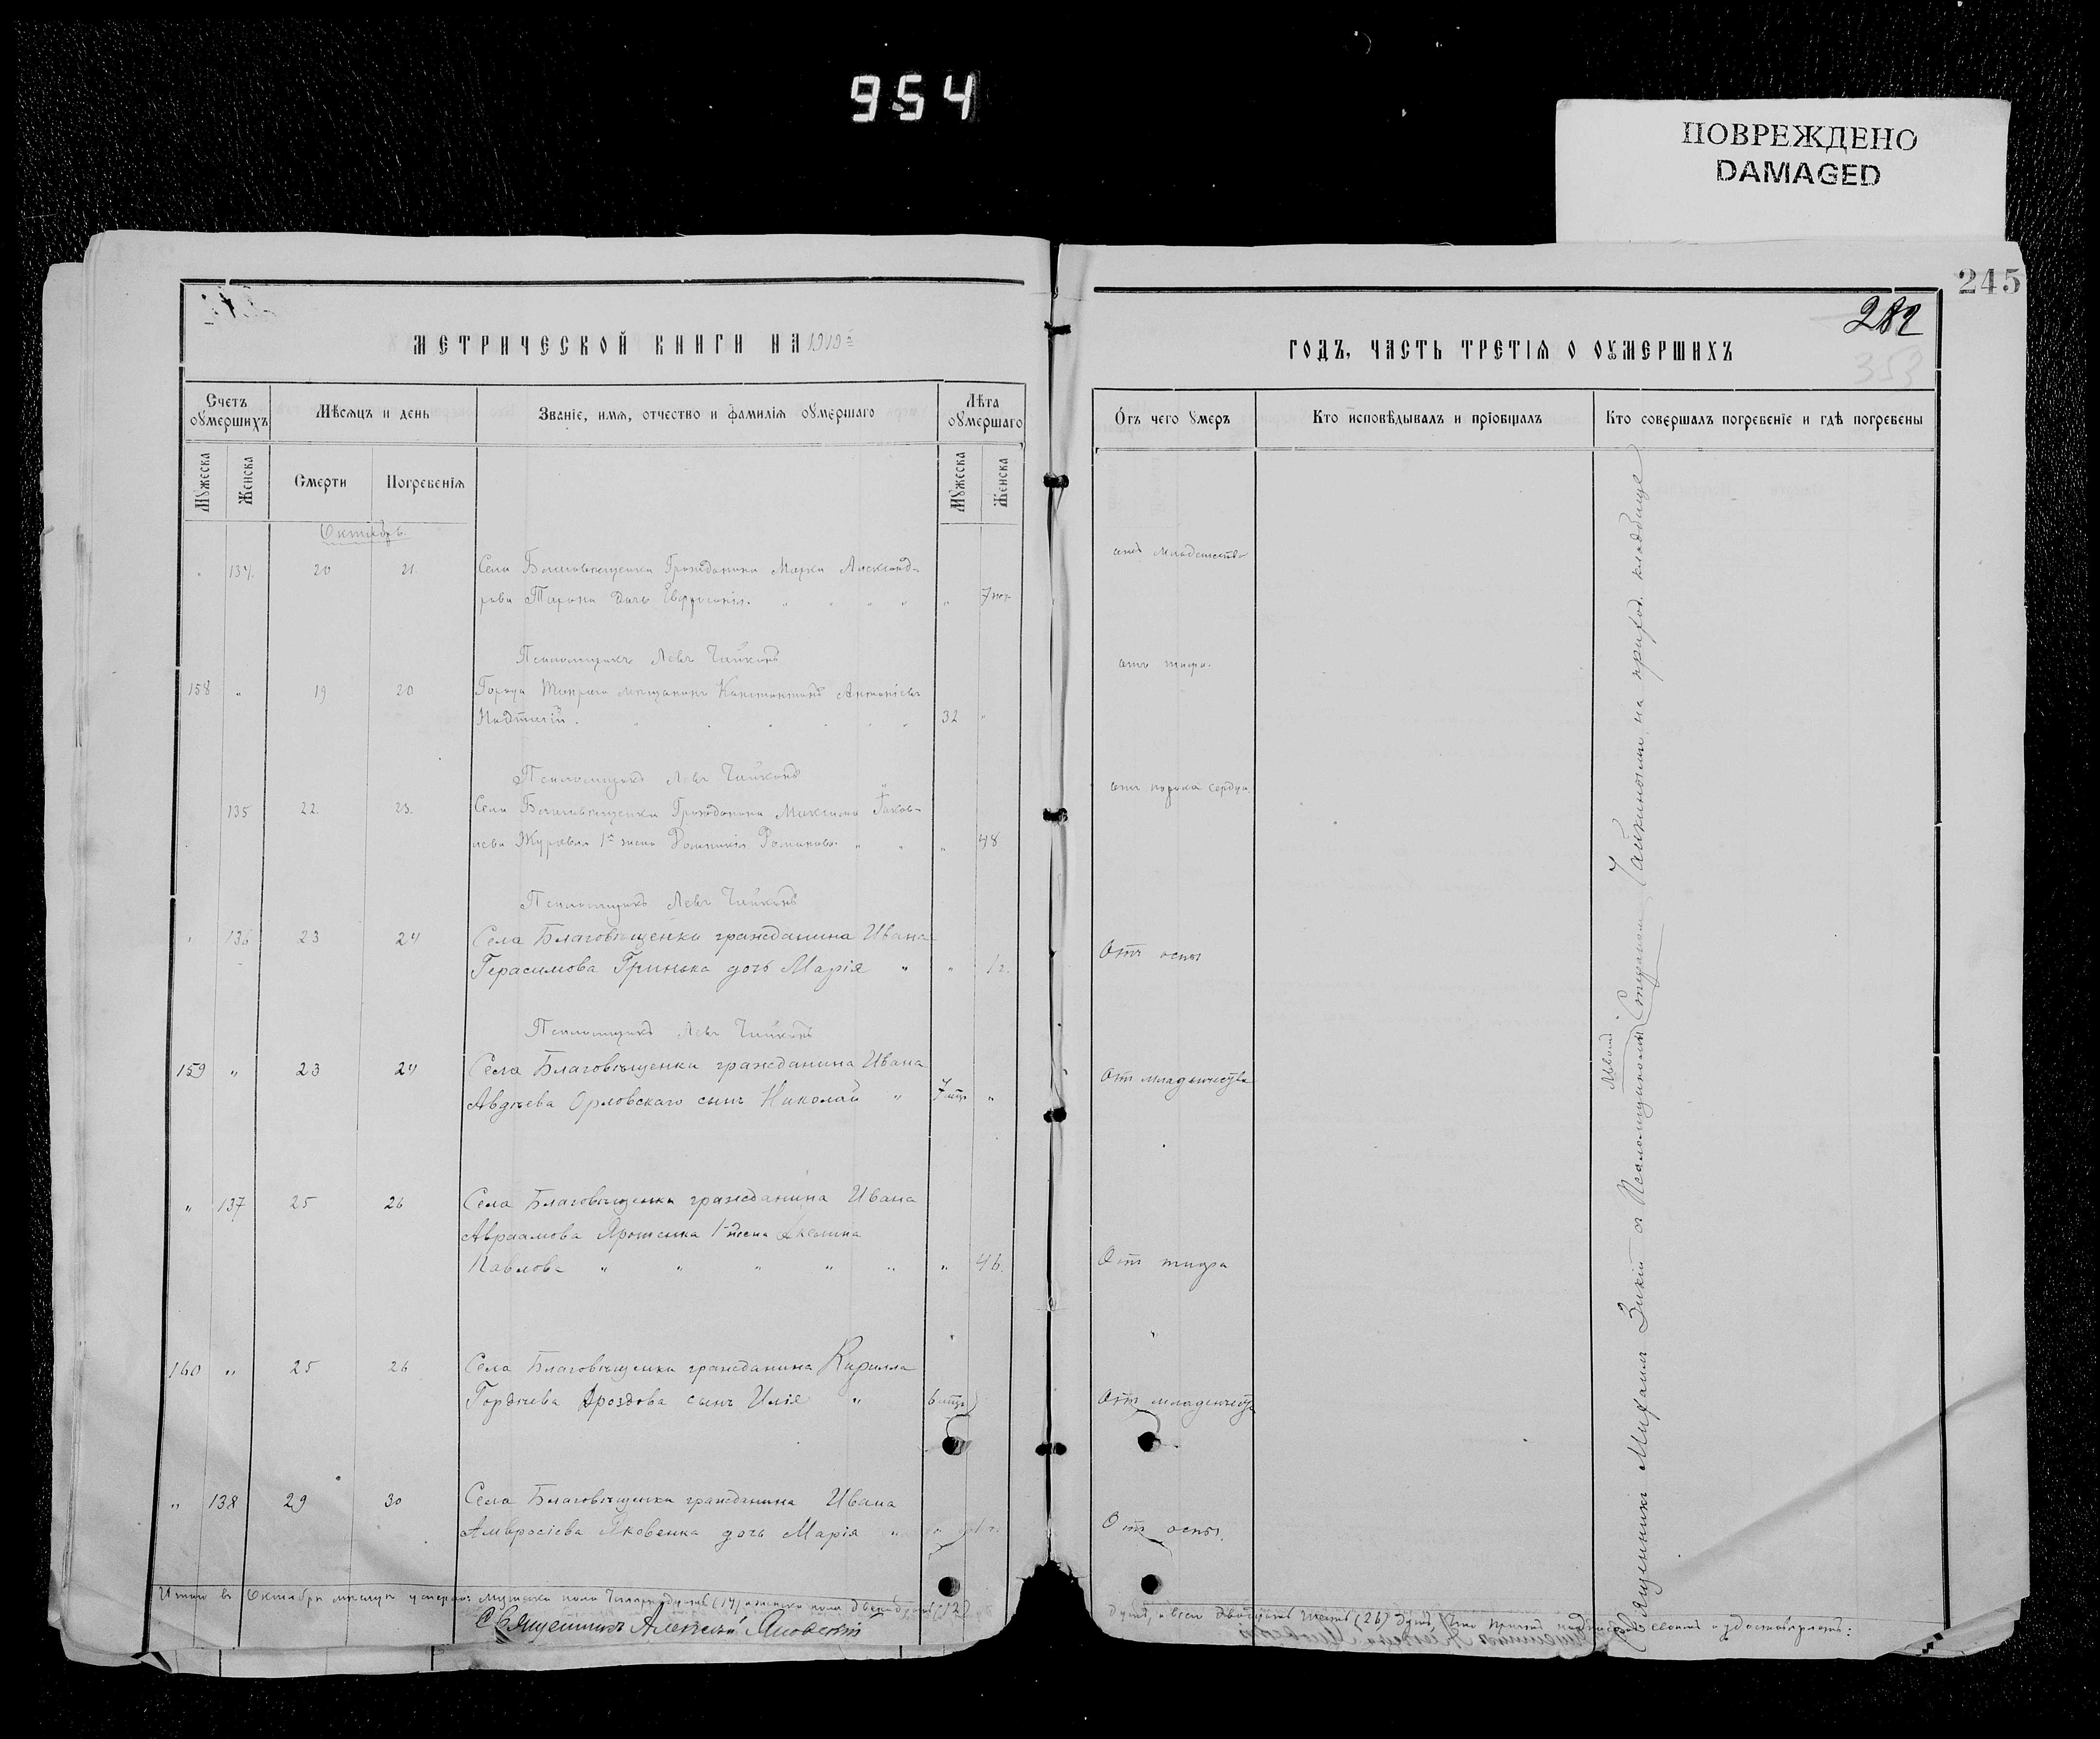 954
ПОВРЕЖДЕНО
DAMAGED
245
282
353
МЕТРИЧЕСКОЙ КНИГИ НА 1919 г.
ГОДЪ, ЧАСТЬ ТРЕТІЯ О ОУМЕРШИХЪ
Счетъ оумершихъ
Мѣсяцъ и день
Званіе, имя, отчество и фамилія оумершаго
Лѣта оумершаго
Отъ чего умеръ
Кто исповѣдывалъ и пріобщалъ
Кто совершалъ погребеніе и гдѣ погребены
Мужеска
Женска
Смерти
Погребенія
Мужеска
Женска
Октябрь.
„ 134. 20 21. Села Благовѣщенки Гражданина Марка Александ-
рова Тарана дочь Евфросинія. „ „ „ „ „ 7
отъ младенчества
Псаломщикъ Левъ Чайкинъ
158 „ 19 20 Города мѣщанинъ Константинъ Антоніевъ
32 „
отъ тифа.
Псаломщикъ Левъ Чайкинъ
135 22. 23. Села Благовѣщенки Гражданина Максима Іаков-
лева Журавля 1я жена Домникія Романова „ „ „ 48
отъ порока сердца.
Псаломщикъ Левъ Чайкинъ
„ 136 23 24 Села Благовѣщенки гражданина Ивана
Герасимова Гринька дочь Марія „ „ 1 г.
Отъ оспы
Псаломщикъ Левъ Чайкинъ
159 „ 23 24 Села Благовѣщенки гражданина Ивана
Авдѣева Орловскаго сынъ Николай „ 7 мѣс „
От младенчества
„ 137 25 26 Села Благовѣщенки гражданина Ивана
Авраамова Ярошенка 1 жена Акелина
Павлова „ „ „ „ „ „ 46.
Отъ тифа
160 „ 25 26 Села Благовѣщенки гражданина Кирилла
Гордѣева Дроздова сынъ Илія „ 6 мѣс
Отъ младенчества
„ 138 29 30 Села Благовѣщенки гражданина Ивана
Амвросіева Яковенка дочь Марія „ „ 1 г.
Отъ оспы.
Священникъ Михаилъ Зикій съ Псаломщиком Львомъ Чайкинымъ, на приход. кладбище
Итого въ Октябрѣ мѣсяцѣ умерло: мужеска пола Четырнадцать (14) и женска пола двенадцать (12)
душъ, а всего Двадцать шесть (26) душъ
Священникъ Алексѣй Яновскій